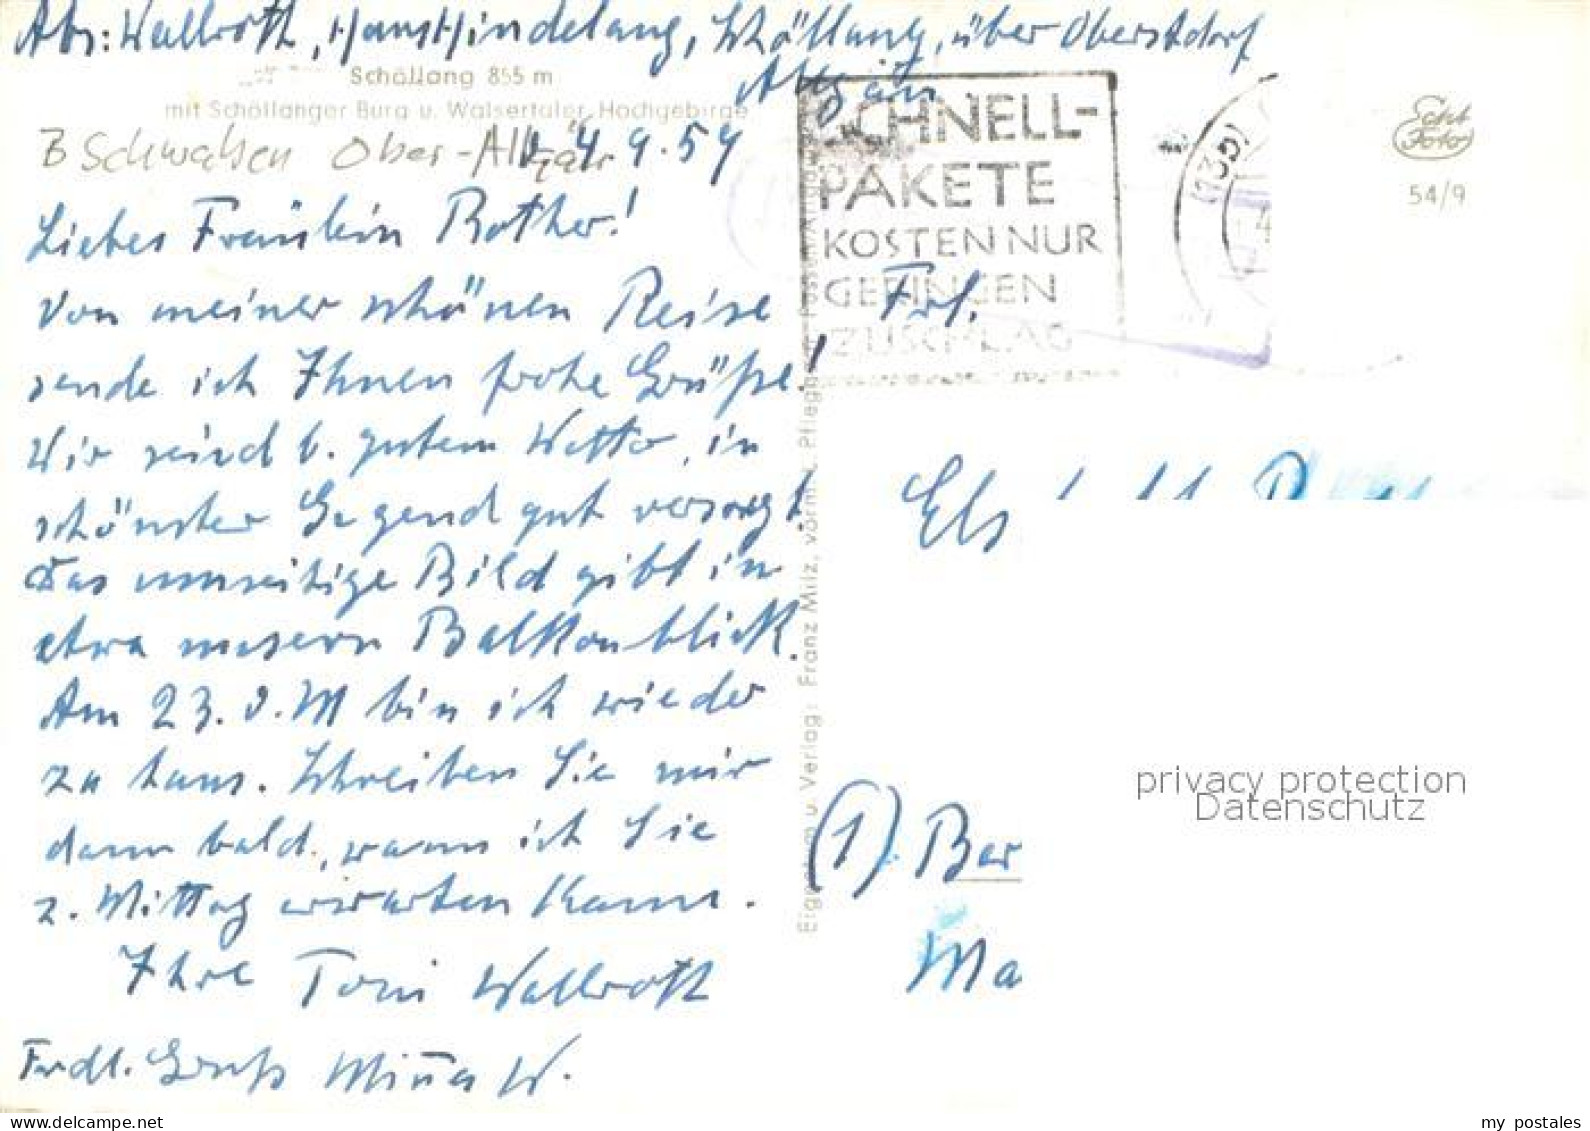 Abs: Wallroth, Haus Hindelang, Schöllang, über Oberstdorf
Allgäu
Schöllang 855 m
mit Schöllanger Burg u. Walsertaler Hochgebirge
B Schwaben Ober-Allgäu
4.9.59
Liebes Fräulein Rother!
Von meiner schönen Reise
sende ich Ihnen frohe Grüße!
Wir sind b. gutem Wetter, in
schönster Gegend gut versorgt.
Das umseitige Bild gibt in
etwa unsern Balkonblick.
Am 23. d. M bin ich wieder
zu Haus. Schreiben Sie mir
dann bald, wann ich Sie
z. Mittag erwarten kann.
Ihre Toni Wallroth
Frdl. Gruß Minna W.
Eigentum u. Verlag: Franz Milz, vorm.
SCHNELL-
PAKETE
KOSTEN NUR
GERINGEN
ZUSCHLAG
(13b)
Echt
Foto
54/9
Frl.
Els
(1) Ber
Ma
privacy protection
Datenschutz
my postales